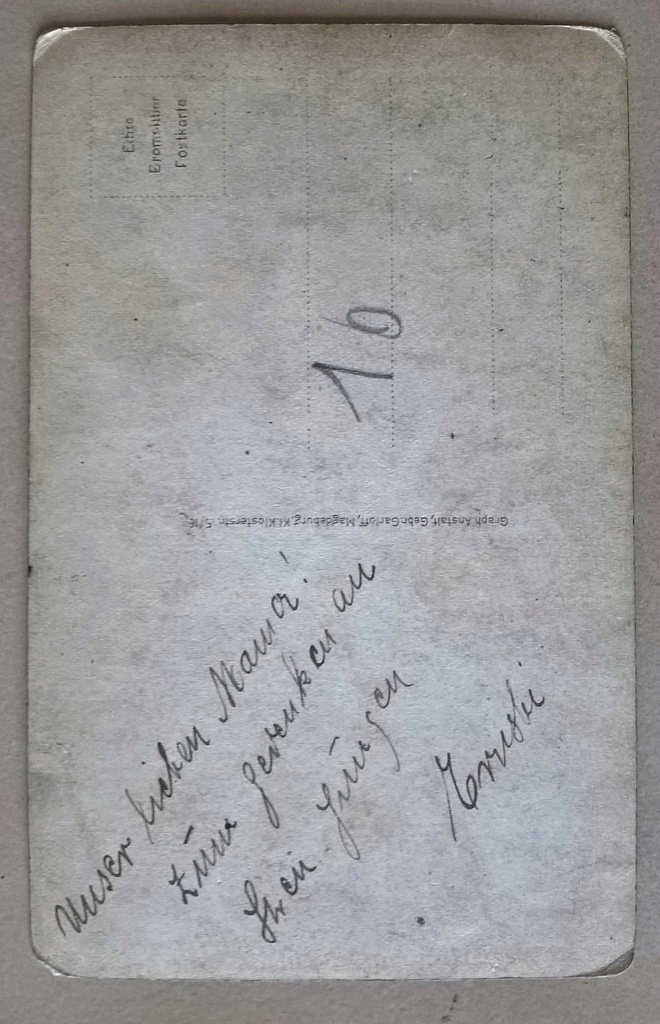 Echte
Bromsilber
Postkarte
16
Graph. Anstalt, Gebr. Garloff, Magdeburg, Kl. Klosterstr. 5/16
Unser lieben Mama!
zum gedenken an
Ihren Jungen